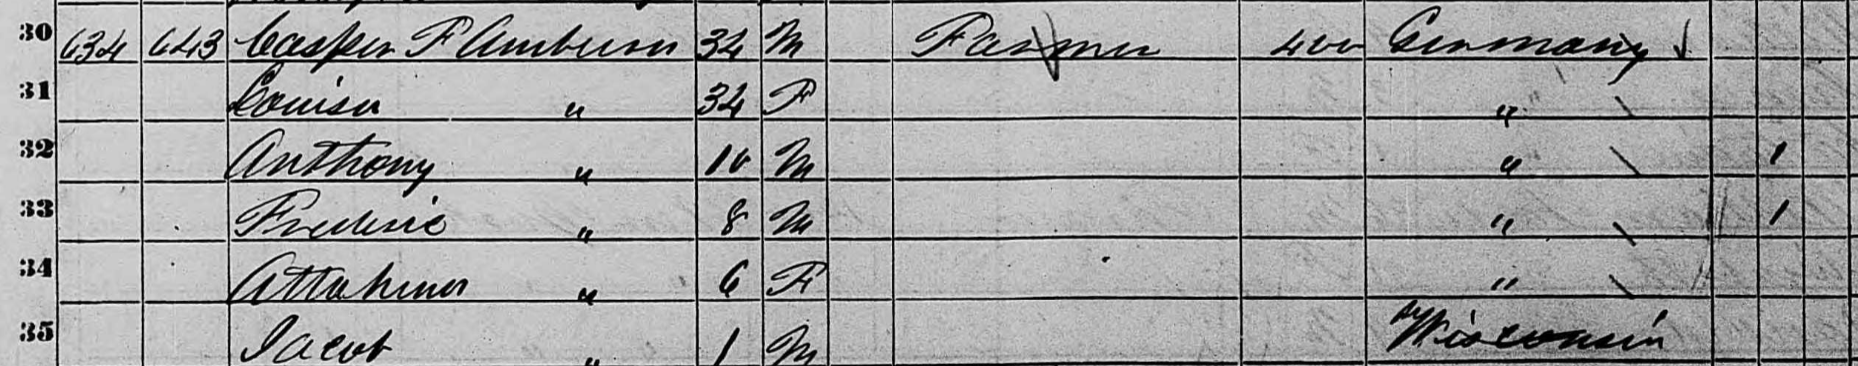 30 634 643 Casper F Amberson 34 M Farmer 400 Germany
31 Louisa " 34 F "
32 Anthony " 10 M " 1
33 Frederic " 8 M " 1
34 " 6 F "
35 Jacob " 1 M Wisconsin